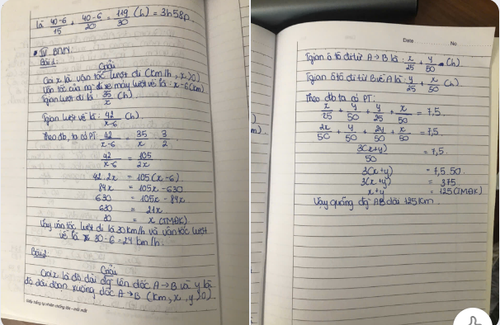 là 40-6/15 + 40-6/20 = 119/30 (h) = 3h58p.
* TỰ BNM.
Bài 1:
Giải
Gọi x là vận tốc lượt đi (km/h, x>0)
Vận tốc của ng đi xe máy lượt về là: x-6 (km)
Tgian lượt đi là 35/x (h)
Tgian lượt về là: 42/x-6 (h)
Theo đb, ta có PT: 42/x-6 = 35/x · 3/2
42/x-6 = 105/2x
42.2x = 105(x-6)
84x = 105x - 630
630 = 105x - 84x
630 = 21x
30 = x (TMĐK)
Vậy vận tốc lượt đi là 30km/h và vận tốc lượt
về là 30-6 = 24 km/h.
Bài 2:
Giải
Gọi x là độ dài đg lên dốc A→B và y là
độ dài đoạn xuống dốc A→B (km, x,y>0).
Date No
Tgian ô tô đi từ A→B là: x/25 + y/50 (h)
Tgian ô tô đi từ B về A là: y/25 + x/50 (h)
Theo đb ta có PT:
x/25 + y/50 + y/25 + x/50 = 7,5.
2x/50 + y/50 + 2y/50 + x/50 = 7,5
3(x+y)/50 = 7,5.
3(x+y) = 7,5.50
3(x+y) = 375
x+y = 125 (TMĐK)
Vậy quãng đg AB dài 125 km.